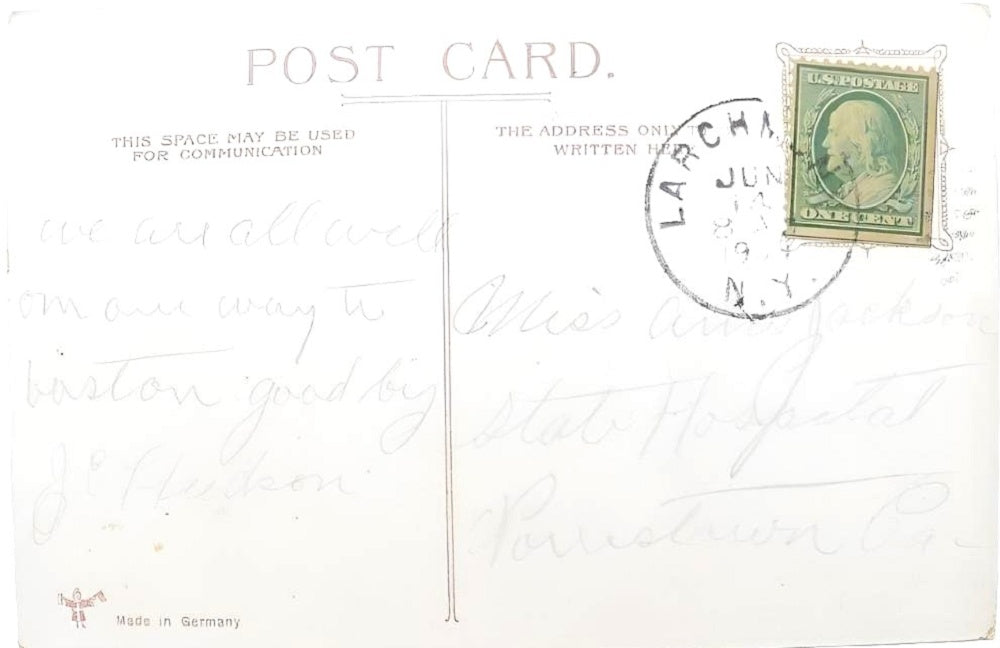 POST CARD.
THIS SPACE MAY BE USED
FOR COMMUNICATION
THE ADDRESS ONLY
WRITTEN HERE
U.S. POSTAGE
ONE CENT
LARCHM
JUN
N.Y.
we are all well
on our way to
boston good by
J Hudson
Miss Jackson
State Hospital
Norristown Pa
Made in Germany